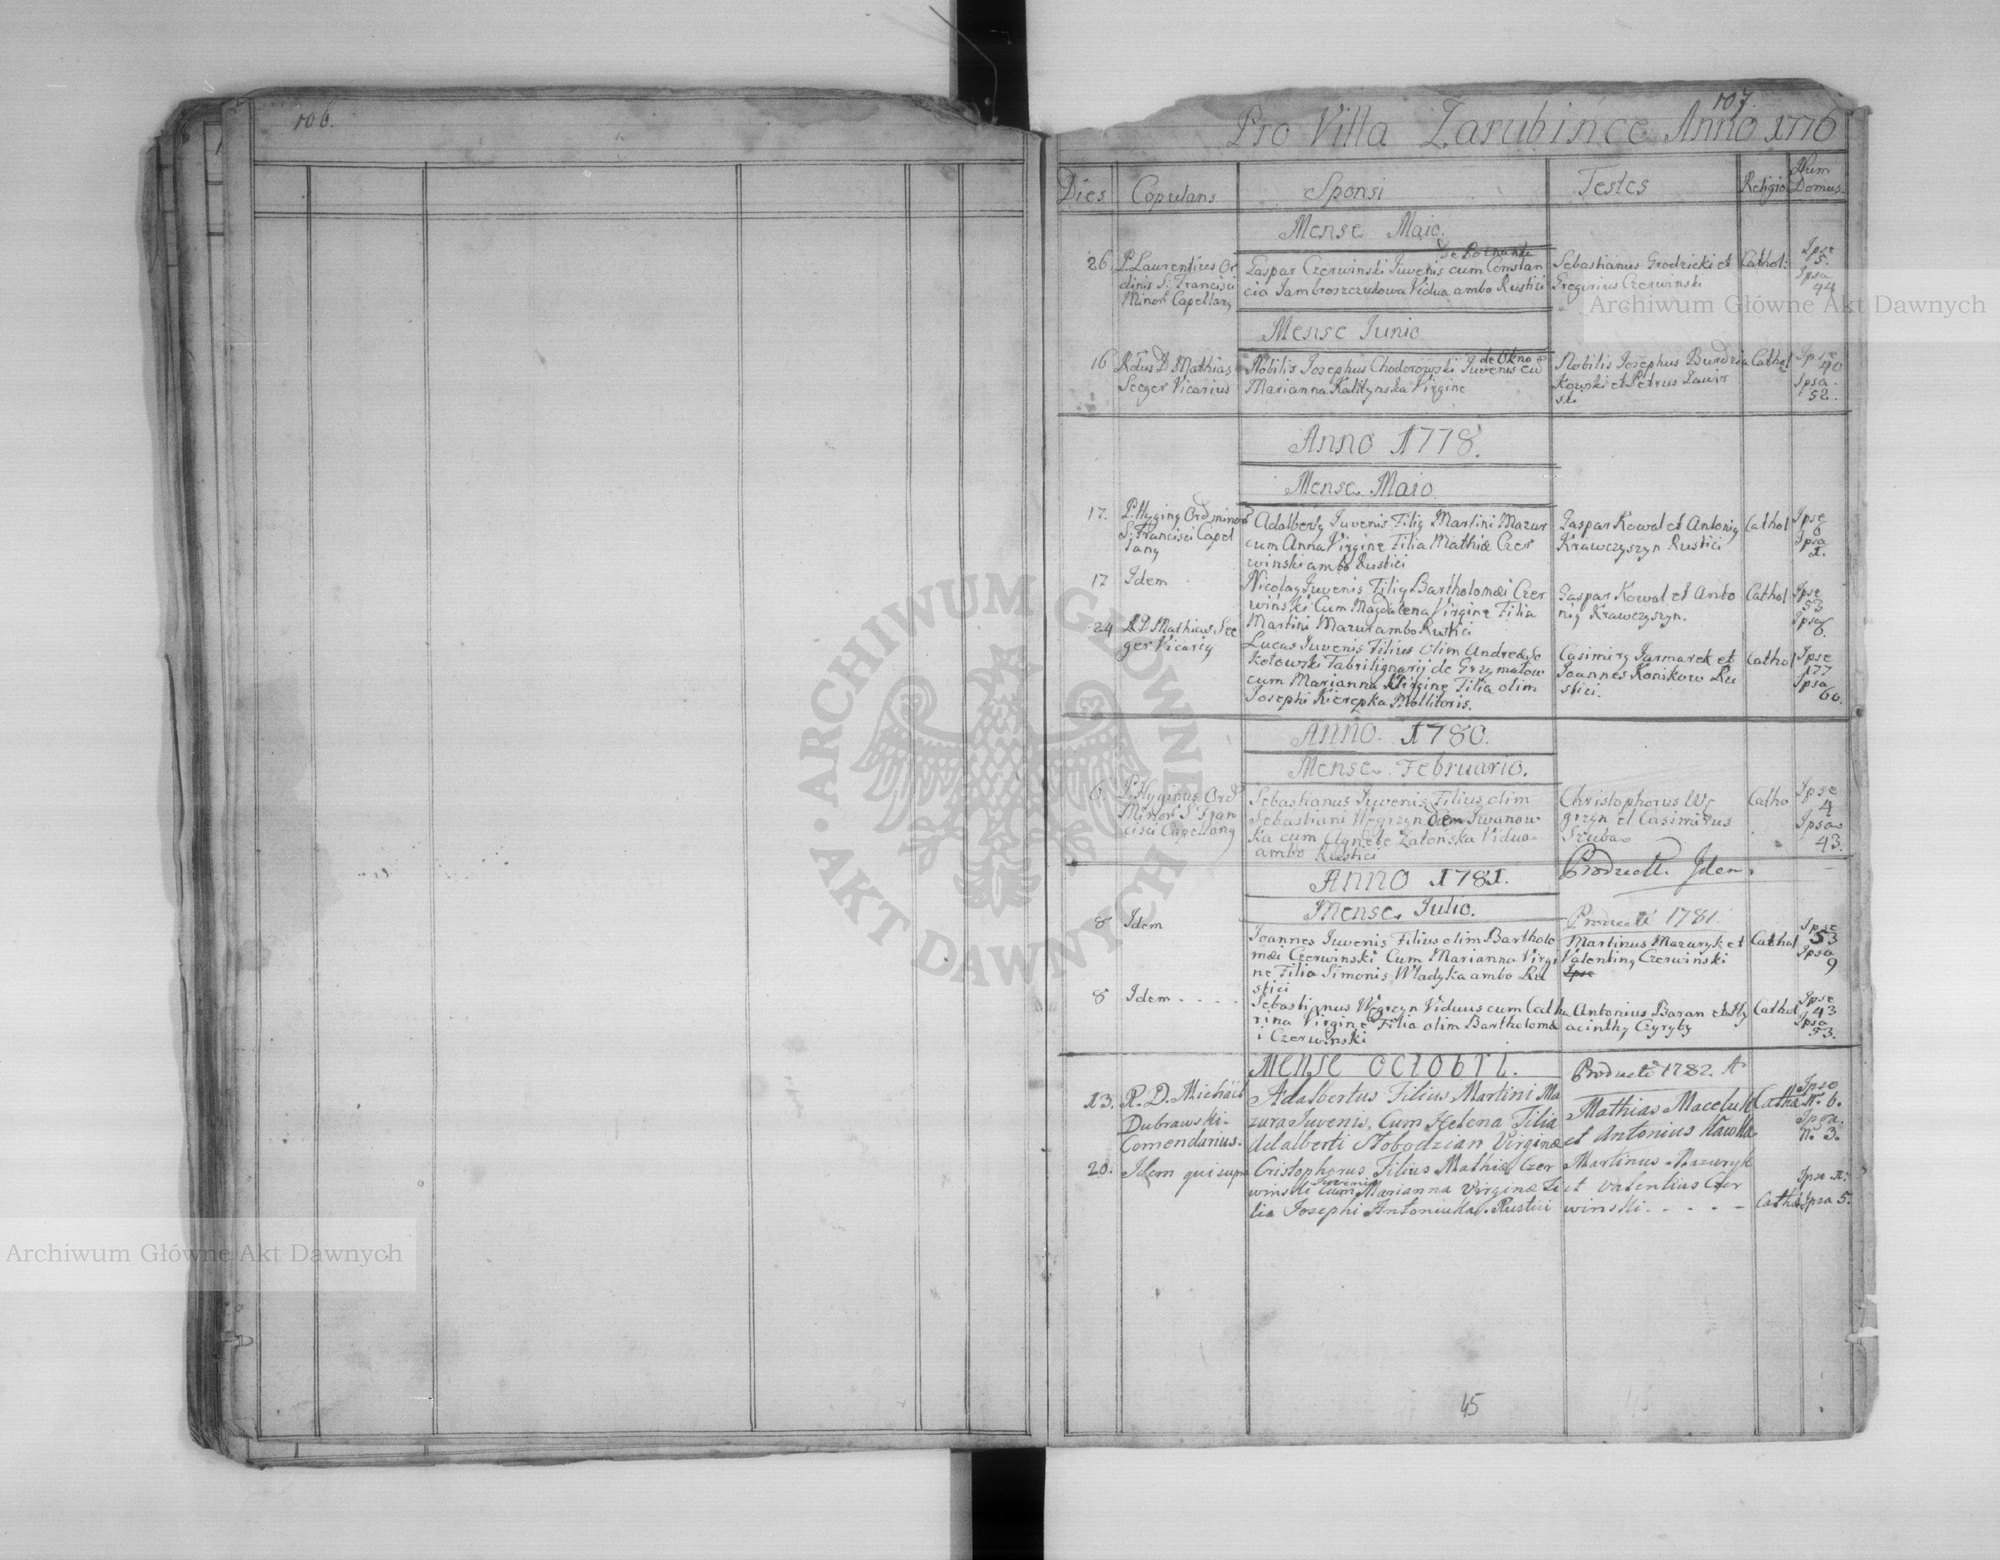 106.
107.
Pro Villa Zarubińce Anno 1776
Dies
Copulans
Sponsi
Testes
Religio
Num
Domus
Mense Maio.
26
P. Laurentius Or
dinis S. Francisci
Minor Capellang
Gaspar Czerwinski Iuvenis cum Constan
cia Jambroszczukowa Vidua ambo Rustici
Sebastianus Grodzicki et
Gregorius Czerwinski
Cathol:
Ipse
5.
Ipsa
44
Mense Iunio
16
Rdus D Mathias
Seeger Vicarius
de Okno
Nobilis Iosephus Chodorowski Iuvenis cū
Marianna Kalitynska Virgine
Nobilis Iosephus Burdzia
Kowski et Petrus Lawir
ski
Cathol
Ipse
40
Ipsa
52.
Anno 1778.
Mense Maio.
17.
P. Hyging Ord minor
S. Francisci Capel
lang
Adalbertg Iuvenis Filig Martini Mazur
cum Anna Virgine Filia Mathiæ Czer
winski ambo Rustici
Gaspar Kowal et Antonig
Krawczyszyn Rustici
Cathol
Ipse
6
Ipsa
1.
17
Idem
Nicolag Iuvenis Filig Bartholomæi Czer
winski Cum Magdalena Virgine Filia
Martini Mazur ambo Rustici
Gaspar Kowal et Anto
nig Krawczyszyn.
Cathol
Ipse
53
Ipsa
6.
24
R D Mathias See
ger Vicarig
Lucas Iuvenis Filius olim Andreæ So
kolowski Fabrilignarij de Grzymalow
cum Marianna Virgine Filia olim
Iosephi Kierepka Mollitoris.
Casimirg Jarmarek et
Ioannes Konikow Ru
stici.
Cathol
Ipse
177
Ipsa
60.
Anno. 1780.
Mense Februario.
6.
P. Hyginus Ord
Minor S. Fran
cisci Capellang
Sebastianus Iuvenis Filius olim
Sebastiani Węgrzyn de Iwanow
ka cum Agnete Zatońska Vidua
ambo Rustici
Christophorus Wę
grzyn et Casimirus
Szuba
Catho
Ipse
4
Ipsa
43.
Producti. Idem.
Anno 1781.
Mense Julio.
Producti 1781.
8
Idem
Ioannes Iuvenis Filius olim Bartholo
mæi Czerwinski Cum Marianna Virgi
ne Filia Simonis Wladyka ambo Ru
stici
Martinus Mazuryk et
Valenting Czerwinski
Ipse
Cathol
Ipse
53
Ipsa
9
8
Idem . . . .
Sebastianus Węgrzyn Viduus cum Catha
rina Virgine Filia olim Bartholomæ
i Czerwinski
Antonius Baran et Hy
acinthg Cyryty
Cathol
Ipse
43
Ipsa
53.
Mense Octobri.
Producti 1782. A
13.
R. D. Michael
Dubrawski
Comendarius.
Adalbertus Filius Martini Ma
zura Iuvenis, Cum Helena Filia
Adalberti Stobodzian Virginæ
Mathias Maceluk
et Antonius
Catho
Ipse
N. 6.
Ipsa
N. 3.
20.
Idem qui supra
Cristophorus Filius Mathiæ Czer
Iuvenis
winski cum Marianna Virginæ Fi
lia Iosephi Antoniuka. Rustici
Martinus Mazuryk
et Valentius Czer
winski . . . . .
Cathol
Ipse N:
Ipsa 5.
45
ARCHIWUM GŁÓWNE • AKT DAWNYCH •
Archiwum Główne Akt Dawnych
Archiwum Główne Akt Dawnych